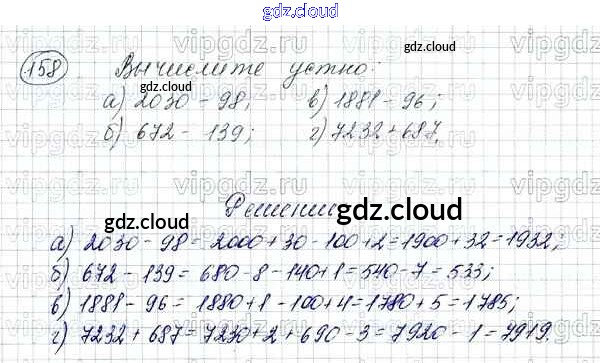 gdz.cloud
gdz.cloud
158 Вычислите устно:
gdz.cloud
а) 2030 - 98; в) 1881 - 96;
б) 672 - 139; г) 7232 + 687.
gdz.cloud
Решение
gdz.cloud
а) 2030 - 98 = 2000 + 30 - 100 + 2 = 1900 + 32 = 1932;
б) 672 - 139 = 680 - 8 - 140 + 1 = 540 - 7 = 533;
в) 1881 - 96 = 1880 + 1 - 100 + 4 = 1780 + 5 = 1785;
г) 7232 + 687 = 7230 + 2 + 690 - 3 = 7920 - 1 = 7919.
gdz.cloud